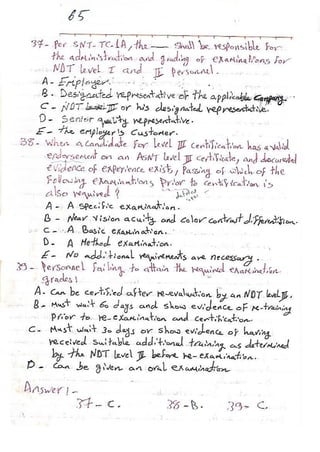 65
37- Per SNT-TC-1A, the — shall be responsible for
the administration and grading of examinations for
NDT level I and II personnel.
A - Employer.
B. Designated representative of the applicable company.
C - NDT level III or his designated representative.
D - Senior quality representative.
E - The employer's customer.
38- When a candidate for level III certification has a valid
endorsement on an ASNT level III certificate, and documented
evidence of experience exists, Passing of which of the
following examinations prior to certification is
also required?
A - A specific examination.
B - Near vision acuity and color contrast differentiation.
C - A Basic examination.
D - A Method examination.
E - No additional requirements are necessary.
39- Personnel failing to attain the required examination
grades:
A- Can be certified after re-evaluation by an NDT level III.
B- Must wait 60 days and show evidence of re-training
prior to re-examination and certification.
C- Must wait 30 days or show evidence of having
received suitable additional training as determined
by the NDT level III before re-examination.
D - Can be given an oral examination
Answer:-
37- C. 38-B. 39- C.